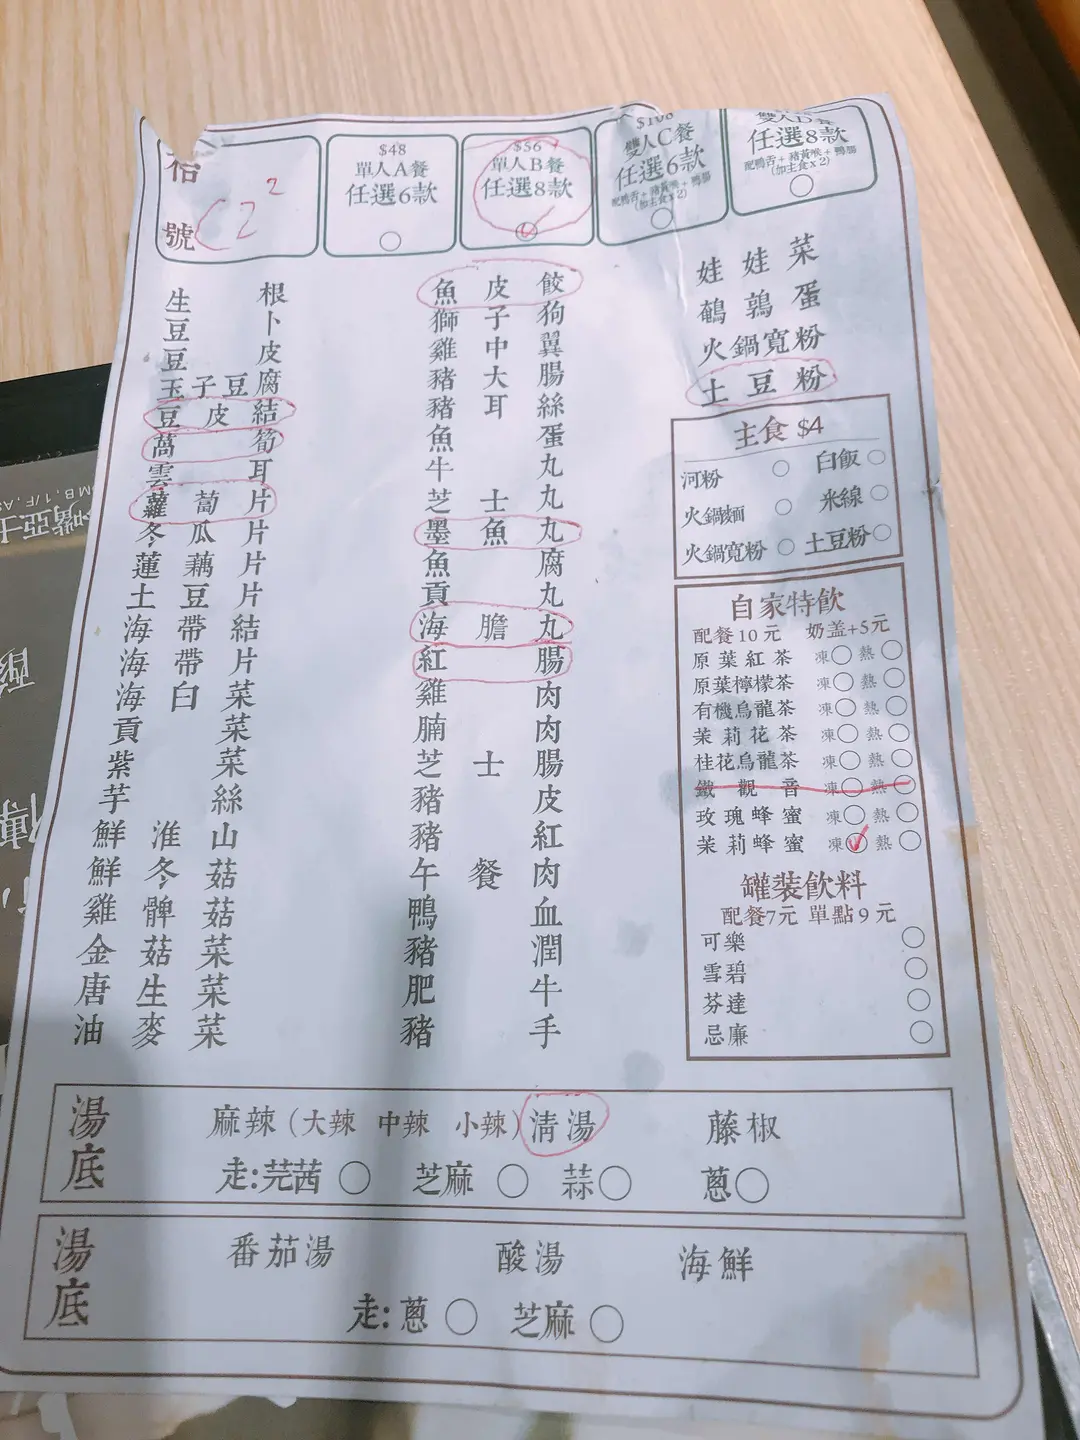 枱號 C2 2
$48
單人A餐
任選6款
$56
單人B餐
任選8款
雙人C餐
任選6款
配鴨舌+豬黃喉+鴨腸
(加主食x2)
雙人D餐
任選8款
配鴨舌+豬黃喉+鴨腸
(加主食x2)
生根
豆卜
豆皮
玉子豆腐
豆皮結
萵筍
雲耳
蘿蔔片
冬瓜片
蓮藕片
土豆片
海帶結
海帶片
海白菜
貢菜
紫菜
芋絲
鮮淮山
鮮冬菇
雞髀菇
金菇菜
唐生菜
油麥菜
魚皮餃
獅子狗
雞中翼
豬大腸
豬耳絲
魚蛋
牛丸
芝士丸
墨魚丸
魚腐
貢丸
海膽丸
紅腸
雞肉
腩肉
芝士腸
豬皮
豬紅
午餐肉
鴨血
豬潤
肥牛
豬手
娃娃菜
鵪鶉蛋
火鍋寬粉
土豆粉
主食 $4
河粉 白飯
火鍋麵 米線
火鍋寬粉 土豆粉
自家特飲
配餐10元 奶盖+5元
原葉紅茶 凍 熱
原葉檸檬茶 凍 熱
有機烏龍茶 凍 熱
茉莉花茶 凍 熱
桂花烏龍茶 凍 熱
鐵觀音 凍 熱
玫瑰蜂蜜 凍 熱
茉莉蜂蜜 凍 熱
罐裝飲料
配餐7元 單點9元
可樂
雪碧
芬達
忌廉
湯底
麻辣(大辣 中辣 小辣) 清湯 藤椒
走:芫茜 芝麻 蒜 蔥
湯底
番茄湯 酸湯 海鮮
走:蔥 芝麻